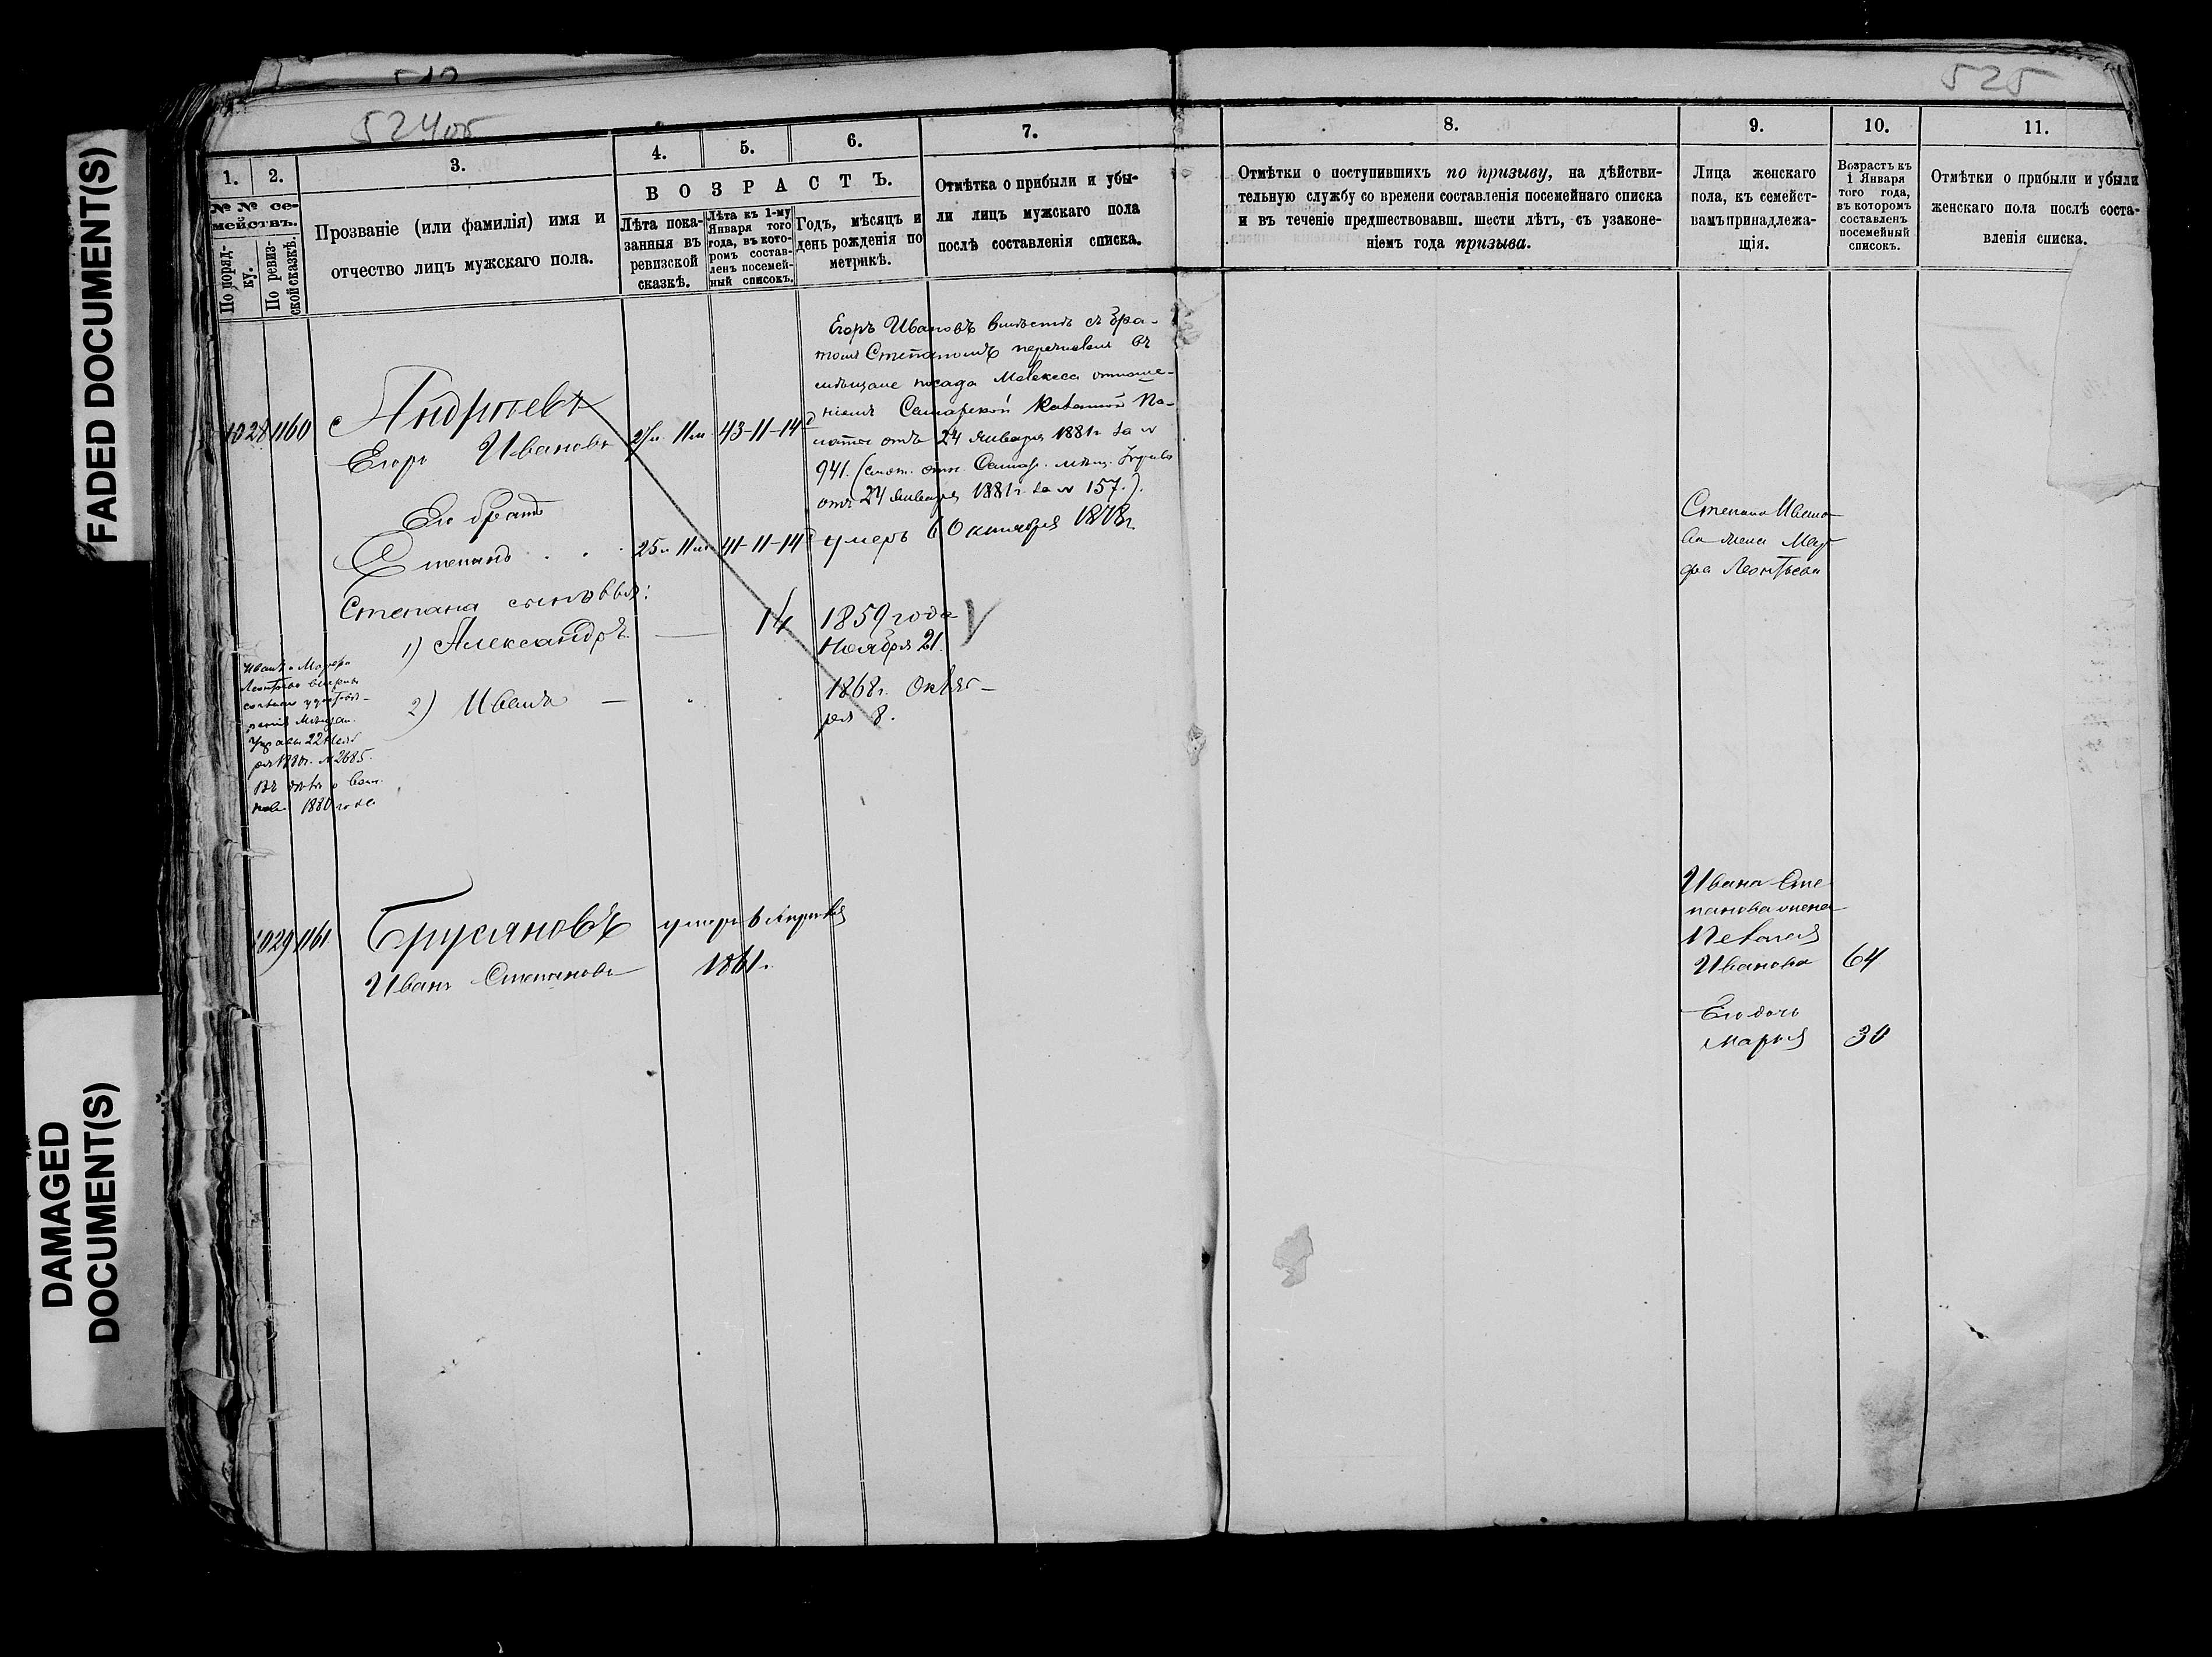 FADED DOCUMENT(S)
DAMAGED
DOCUMENT(S)
524об
525
1.
2.
3.
4.
5.
6.
7.
8.
9.
10.
11.
№ № се-
мействъ.
По поряд-
ку.
По ревиз-
ской сказкѣ.
Прозваніе (или фамилія) имя и
отчество лицъ мужскаго пола.
ВОЗРАСТЪ.
Лѣта пока-
занныя въ
ревизской
сказкѣ.
Лѣта къ 1-му
Января того
года, въ кото-
ромъ состав-
ленъ посемей-
ный списокъ.
Годъ, мѣсяцъ и
день рожденія по
метрикѣ.
Отмѣтка о прибыли и убы-
ли лицъ мужскаго пола
послѣ составленія списка.
Отмѣтки о поступившихъ по призыву, на дѣйстви-
тельную службу со времени составленія посемейнаго списка
и въ теченіе предшествовавш. шести лѣтъ, съ узаконе-
ніемъ года призыва.
Лица женскаго
пола, къ семейст-
вамъ принадлежа-
щія.
Возрастъ къ
1 Января
того года,
въ которомъ
составленъ
посемейный
списокъ.
Отмѣтки о прибыли и убыли
женскаго пола послѣ соста-
вленія списка.
1028 1160
Егоръ Ивановъ
11 м 43-11-14
Егоръ Ивановъ вмѣстѣ съ бра-
томъ Степаномъ перечислены въ
мѣщане посада Мелекеса отноше-
ніемъ Самарской Казенной Па-
латы отъ 24 Января 1881 г за №
941. (смот. отн. Самар. мѣщ. Управы
отъ 24 Января 1881 г. за № 157.).
Его братъ
Степанъ
25 л 11 м 41-11-14
умеръ 6 Октября 1878 г.
Степана сыновья:
1) Александръ
14
1859 года
Ноября 21.
2) Иванъ
1868 г. Октяб-
ря 8.
Иванъ
Мѣщан.
Управы 22
1880 г. № 2685.
1880 года
Степана Ивано-
ва жена
Леонтьева
1029 1161
Брусяновъ
Иванъ Степановъ
умеръ 6 Апрѣля
1861 г.
Ивана Сте-
панова жена
Пелагея
Иванова
64
Его дочь
Марья
30